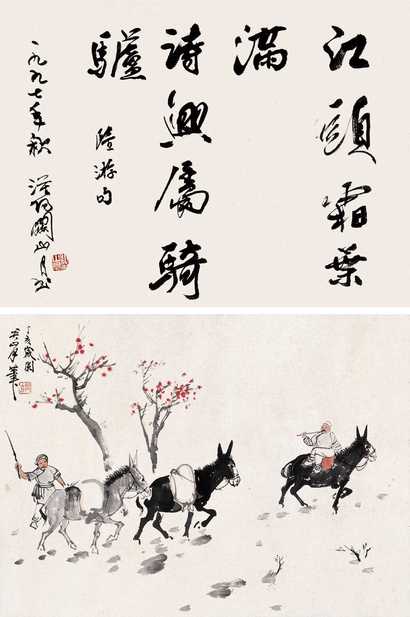 江頭霜葉
滿
詩興屬騎
驢
陸游句
一九九七年秋 漠陽關山月書
丁亥歲關
山月筆